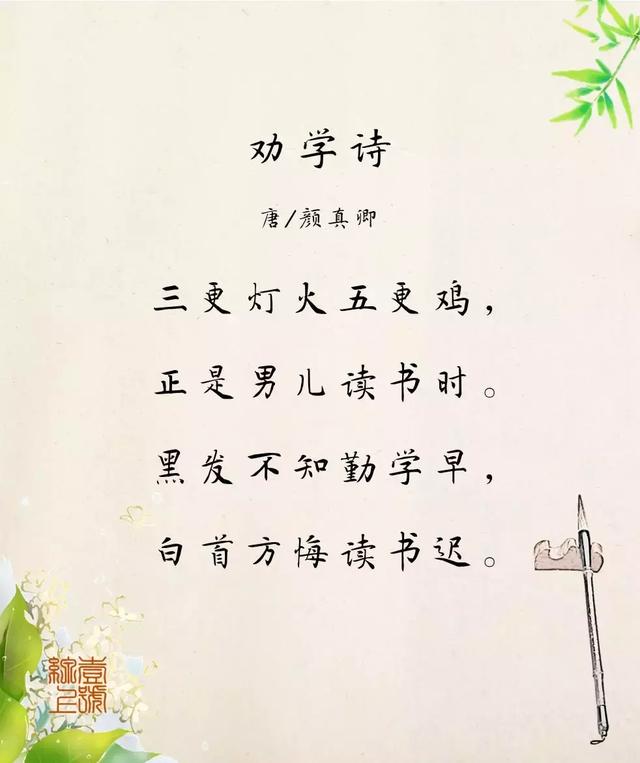 劝学诗
唐/颜真卿
三更灯火五更鸡，
正是男儿读书时。
黑发不知勤学早，
白首方悔读书迟。